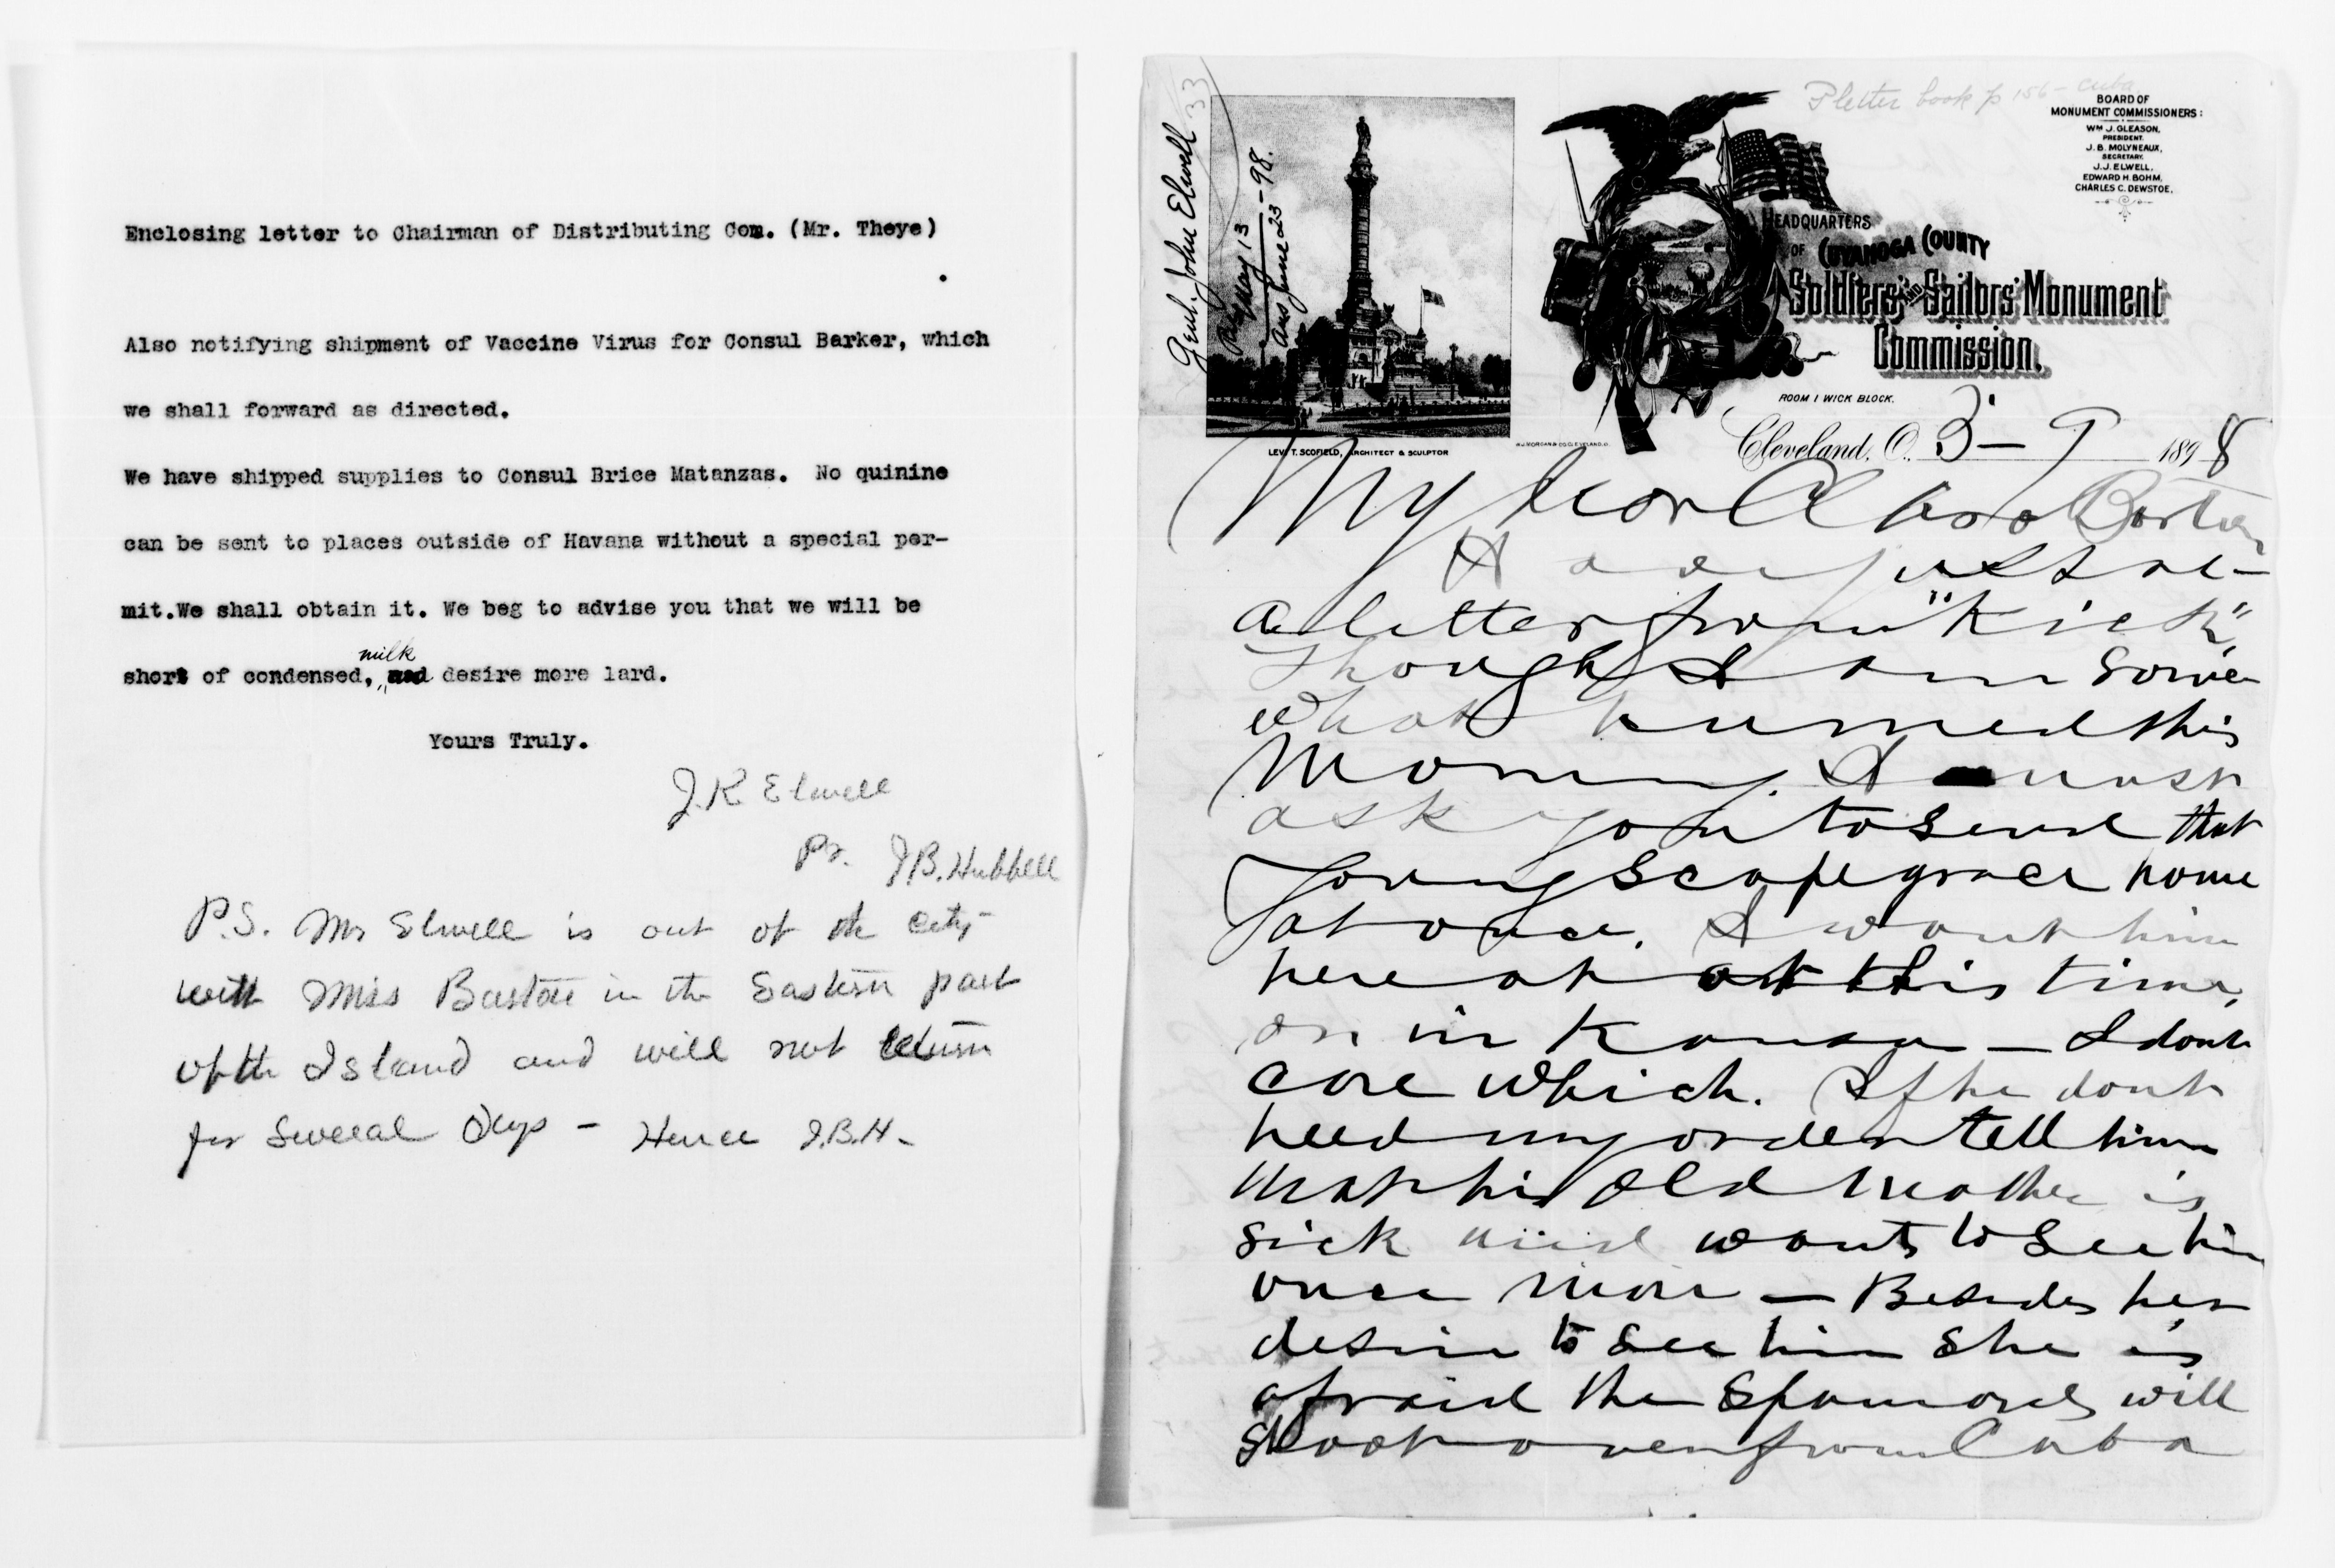 Enclosing letter to Chairman of Distributing Com. (Mr. Theye)
Also notifying shipment of Vaccine Virus for Consul Barker, which
we shall forward as directed.
We have shipped supplies to Consul Brice Matanzas. No quinine
can be sent to places outside of Havana without a special per-
mit.We shall obtain it. We beg to advise you that we will be
milk
short of condensed, and desire more lard.
Yours Truly.
J. K Elwell
Pr. J.B. Hubbell
P.S. Mr Elwell is out of the city
with Miss Barton in the Eastern part
of the Island and will not return
for several Days - Hence J.B.H-
Genl. John Elwell 33
May 13
Ans June 23 - 98.
LEVI T. SCOFIELD, ARCHITECT & SCULPTOR
letter book p 156 - Cuba
BOARD OF
MONUMENT COMMISSIONERS:
WM J. GLEASON,
PRESIDENT.
J. B. MOLYNEAUX,
SECRETARY.
J. J. ELWELL,
EDWARD H. BOHM,
CHARLES C. DEWSTOE.
HEADQUARTERS
OF CUYAHOGA COUNTY
Soldiers' AND Sailors' Monument
Commission.
ROOM 1 WICK BLOCK.
Cleveland, O. 3-9 1898
My Dear Clara Barton
I
a letter from "Kick",
Though I am some
what hurried this
Morning. I must
ask you to send that
young scapegrace home
at once. I want him
here at at this time,
or in Kansas - I dont
care which. If he dont
heed my order tell him
that his old Mother is
sick and wants to see him
once more - Besides her
desire to see him she is
afraid the Spaniards will
shoot over from Cuba